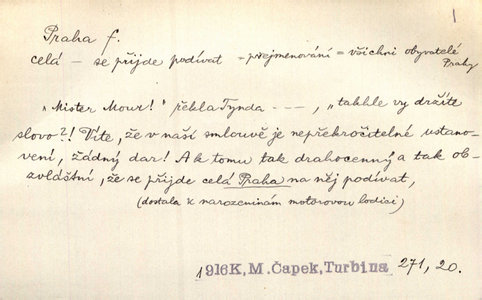 1
Praha f.
celá — se přijde podívat - přejmenování = všichni obyvatelé
Prahy
„Mister Mour!“ řekla Tynda - - -, „takhle vy držíte
slovo?! Víte, že v naší smlouvě je nepřekročitelné ustano-
vení, žádný dar! A k tomu tak drahocenný a tak ob-
zvláštní, že se přijde celá Praha na něj podívat,
(dostala k narozeninám motorovou lodici)
1916K, M. Čapek, Turbina 271, 20.